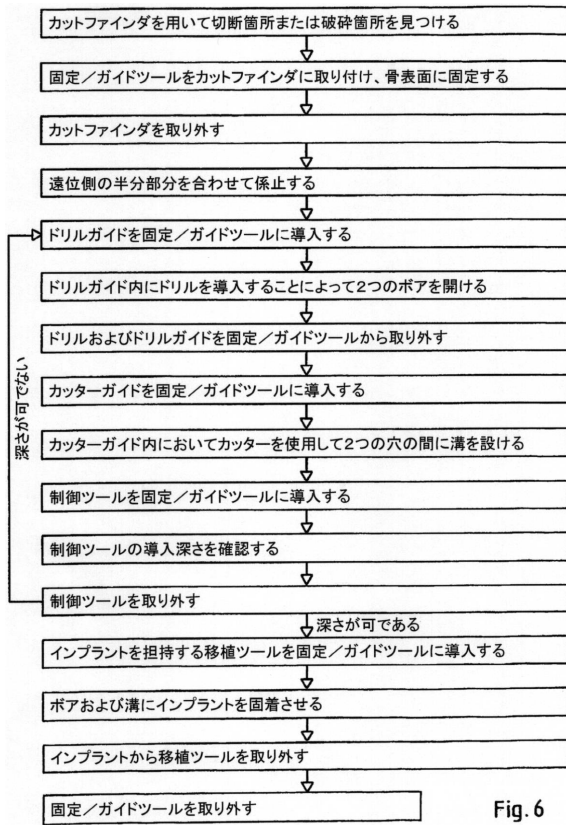 カットファインダを用いて切断箇所または破砕箇所を見つける
固定／ガイドツールをカットファインダに取り付け、骨表面に固定する
カットファインダを取り外す
遠位側の半分部分を合わせて係止する
ドリルガイドを固定／ガイドツールに導入する
ドリルガイド内にドリルを導入することによって2つのボアを開ける
ドリルおよびドリルガイドを固定／ガイドツールから取り外す
カッターガイドを固定／ガイドツールに導入する
カッターガイド内においてカッターを使用して2つの穴の間に溝を設ける
制御ツールを固定／ガイドツールに導入する
制御ツールの導入深さを確認する
制御ツールを取り外す
深さが可でない
深さが可である
インプラントを担持する移植ツールを固定／ガイドツールに導入する
ボアおよび溝にインプラントを固着させる
インプラントから移植ツールを取り外す
固定／ガイドツールを取り外す
Fig. 6